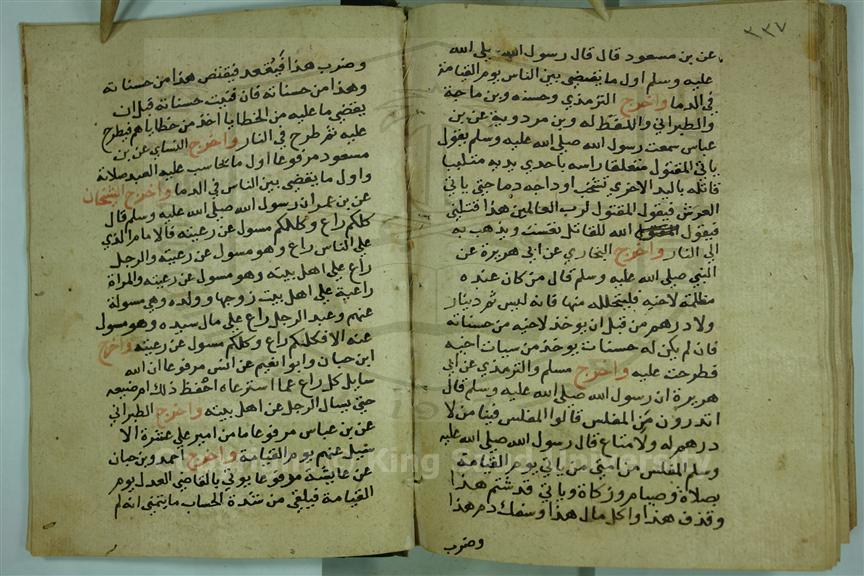 ٢٢٧
عن بن مسعود قال قال رسول الله صلى الله
عليه وسلم اول ما يقضي بين الناس يوم القيامة
في الدما واخرج الترمذي وحسنه وبن ماجة
والطبراني واللفظ له وبن مردوية عن بن
عباس سمعت رسول الله صلى الله عليه وسلم يقول
ياتي المقتول متعلقا راسه باحدي يديه متلببا
قاتله باليد الاخري تشخب اوداجه دما حتى ياتي
العرش فيقول المقتول لرب العالمين هذا قتلني
فيقول الله للقاتل تعست ويذهب به
الي النار واخرج البخاري عن ابي هريرة عن
النبي صلى الله عليه وسلم قال من كان عنده
مظلمة لاخيه فليتحلله منها فانه ليس ثم دينار
ولا درهم من قبل ان يوخذ لاخيه من حسناته
فان لم يكن له حسنات يوخذ من سيات اخيه
فطرحت عليه واخرج مسلم والترمذي عن ابي
هريرة ان رسول الله صلى الله عليه وسلم قال
اتدرون من المفلس قالوا المفلس فينا من لا
درهم له ولا متاع قال رسول الله صلى الله عليه
وسلم المفلس من امتي من ياتي يوم القيامة
بصلاة وصيام وزكاة وياتي قد شتم هذا
وقذف هذا واكل مال هذا وسفك دم هذا
وضرب
وضرب هذا فيقعد فيقتص هذا من حسناته
وهذا من حسناته فان فنيت حسناته قبل ان
يقضي ما عليه من الخطايا اخذ من خطاياهم فيطرح
عليه ثم طرح في النار واخرج النساي عن بن
مسعود مرفوعا اول ما يحاسب عليه العبد صلاته
واول ما يقضي بين الناس في الدما واخرج الشيخان
عن بن عمر ان رسول الله صلى الله عليه وسلم قال
كلكم راع وكلكم مسول عن رعيته فالامام الذي
علي الناس راع وهو مسول عن رعيته والرجل
راع علي اهل بيته وهو مسول عن رعيته والمراة
راعية علي اهل بيت زوجها وولده وهي مسولة
عنهم وعبد الرجل راع علي مال سيده وهو مسول
عنه الا فكلكم راع وكلكم مسول عن رعيته واخرج
ابن حبان وابو انعيم عن انس مرفوعا ان الله
سايل كل راع عما استرعاه احفظ ذلك ام ضيعه
حتى يسال الرجل عن اهل بيته واخرج الطبراني
عن بن عباس مرفوعا ما من امير علي عشرة الا
سيل عنهم يوم القيامة واخرج احمد وبن حبان
عن عايشة مرفوعا يوتي بالقاضي العدل يوم
القيامة فيلقي من شدة الحساب ما يتمني انه لم